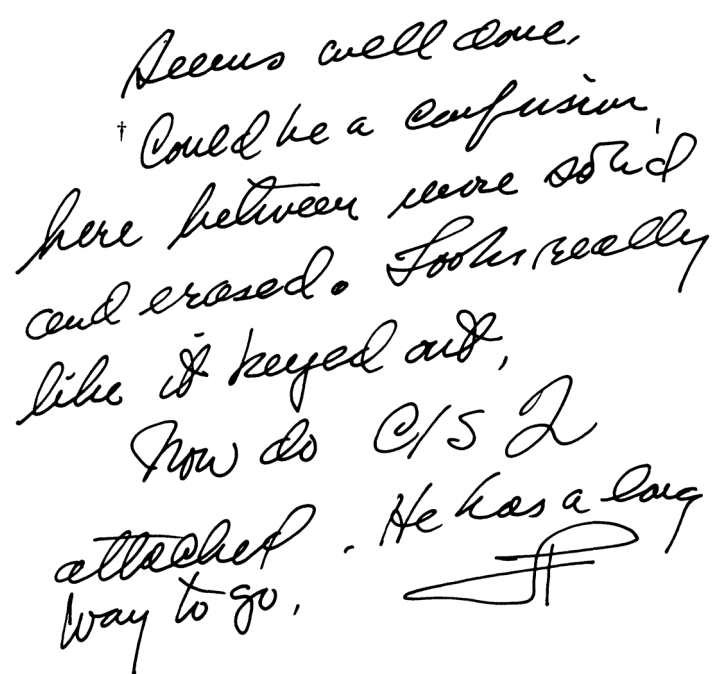 Seems well done.
† Could be a confusion
here between more solid
and erased. Looks really
like it keyed out.
Now do C/S 2
attached. He has a long
way to go.